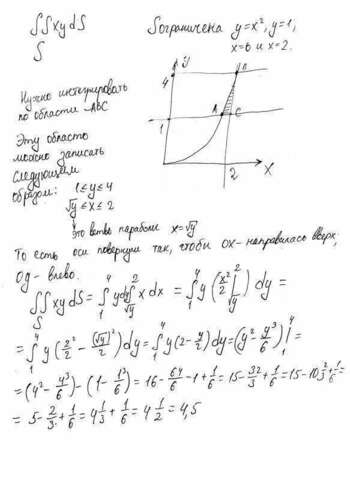 ∬xy dS
S
S ограничена y=x², y=1;
x=0 и x=2.
Нужно интегрировать
по области ABC
Эту область
можно записать
следующим
образом: 1≤y≤4
√y≤x≤2
это ветвь параболы x=√y
y
4
B
A
C
1
2
X
То есть оси повернули так, чтобы ОХ-направилась вверх,
Оу-влево.
∬xy dS = ∫₁⁴ y dy ∫_√y^2 x dx = ∫₁⁴ y (x²/2 |_√y^2) dy =
S
= ∫₁⁴ y(2²/2 - (√y)²/2) dy = ∫₁⁴ y(2-y/2) dy = (y² - y³/6)|₁⁴ =
= (4² - 4³/6) - (1 - 1³/6) = 16 - 64/6 - 1 + 1/6 = 15 - 32/3 + 1/6 = 15 - 10 2/3 + 1/6 =
= 5 - 2/3 + 1/6 = 4 1/3 + 1/6 = 4 1/2 = 4,5